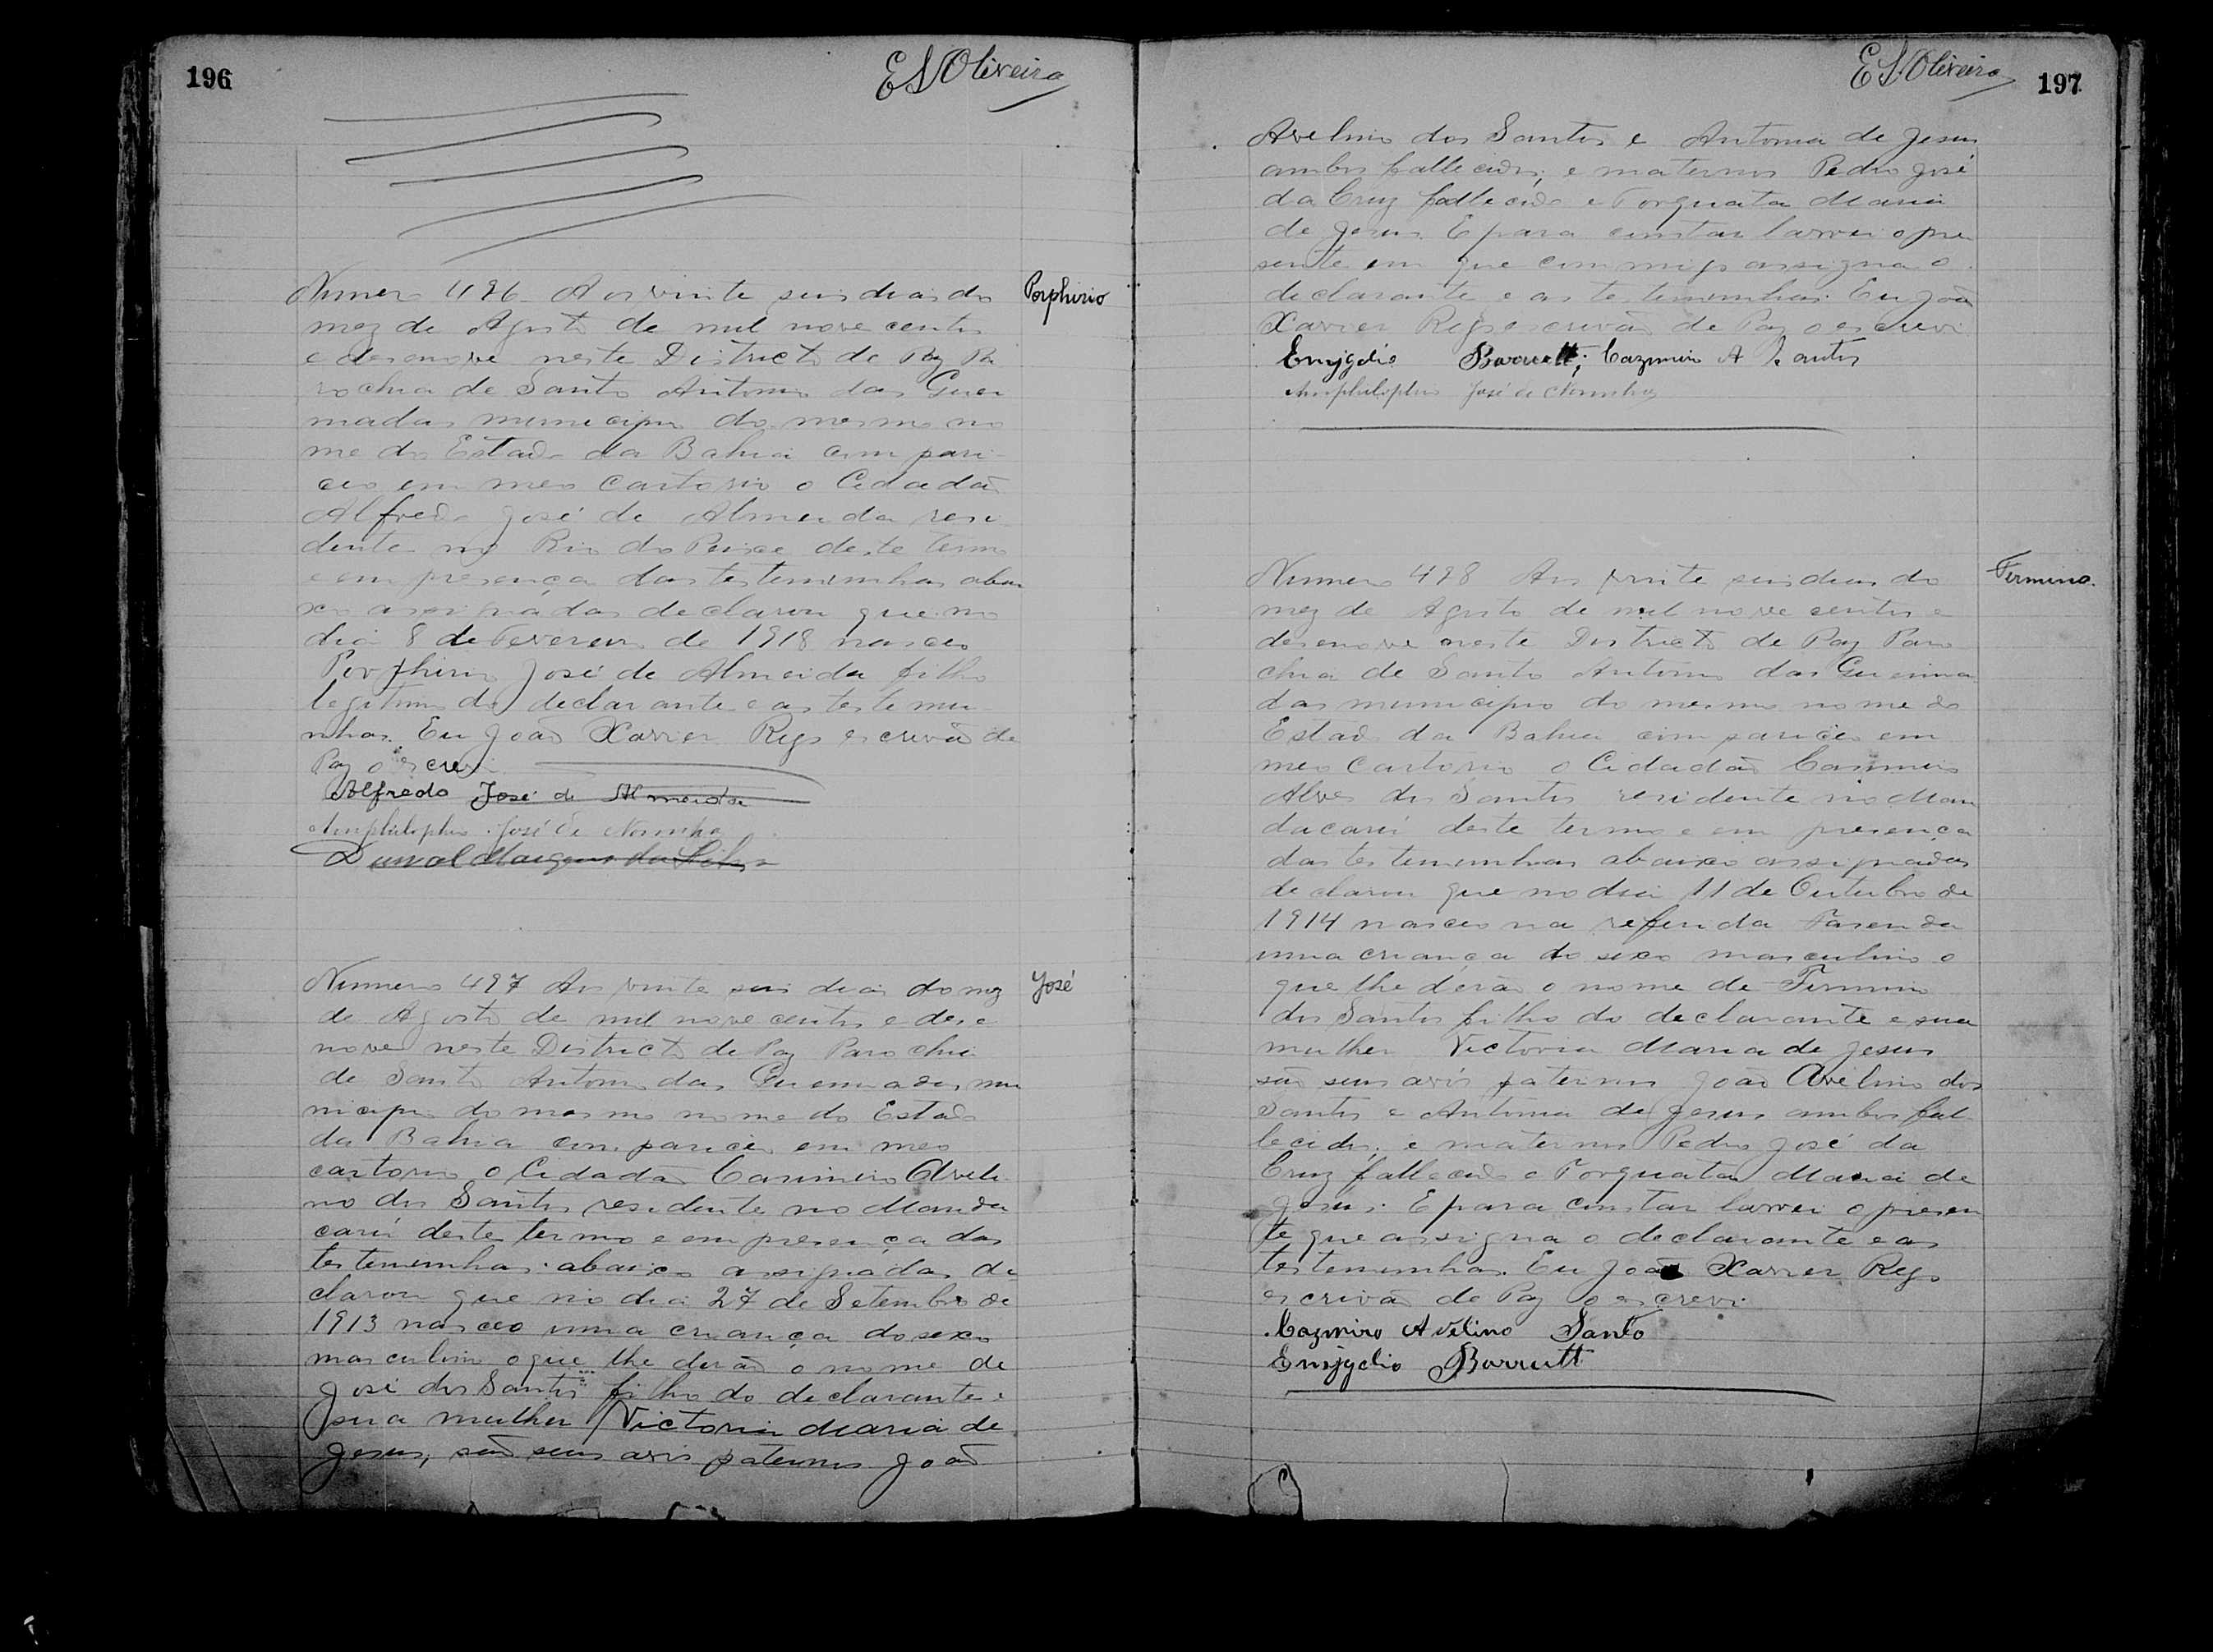 196
E S Oliveira
Numero 496 Aos vinte seis dias do
Porphirio
mez de Agosto de mil nove centos
e desenove neste Districto de Paz Pa
rochia de Santo Antonio das Quei
madas municipio do mesmo no
me do Estado da Bahia compari
ceo em meo Cartorio o Cidadão
Alfredo José de Almeida resi
dente no Rio do Peixe deste termo
e em presença das testemunhas abai
xo assignadas declarou que no
dia 8 de Fevereiro de 1918 nasceo
Porphirio José de Almeida filho
legitimo do declarante e as testemu
nhas. Eu João Xavier Rego escrivão de
Paz o escrevi
Alfredo José de Almeida
Amphilophio José de Noronha
Durval Marques da Silva
Numero 497 Aos vinte seis dias do mez
José
de Agosto de mil nove centos e dese
nove neste Districto de Paz Parochia
de Santo Antonio das Queimadas mu
nicipio do mesmo nome do Estado
da Bahia compariceo em meo
cartorio o Cidadão Casimiro Aveli
no dos Santos residente no Manda
carú deste termo e em presença das
testemunhas abaixo assignadas de
clarou que no dia 27 de Setembro de
1913 nasceo uma criança do sexo
masculino o que lhe derão o nome de
José dos Santos filho do declarante e
sua mulher Victoria Maria de
Jesus, são seus avós paternos João
E S Oliveira
197
Avelino dos Santos e Antonia de Jesus
ambos fallecidos, e maternos Pedro José
da Cruz fallecido e Torquata Maria
de Jesus. E para constar lavrei o pre
sente em que commigo assigna o
declarante e as testemunhas. Eu João
Xavier Rego escrivão de Paz o escrevi
Emygdio Barrett; Cazimiro A Santos
Amphilophio José de Noronha
Numero 498 Aos vinte seis dias do
Firmino.
mez de Agosto de mil nove centos e
desenove neste Districto de Paz Paro
chia de Santo Antonio das Queima
das municipio do mesmo nome do
Estado da Bahia compariceo em
meo Cartorio o Cidadão Casimiro
Alves dos Santos residente no Man
dacarú deste termo e em presença
das testemunhas abaixo assignadas
declarou que no dia 11 de Outubro de
1914 nasceo na referida Fasenda
uma criança do sexo masculino o
que lhe derão o nome de Firmino
dos Santos filho do declarante e sua
mulher Victoria Maria de Jesus
são seus avós paternos João Avelino dos
Santos e Antonia de Jesus ambos fal
lecidos; e maternos Pedro José da
Cruz fallecido e Torquata Maria de
Jesus. E para constar lavrei o presen
te que assigna o declarante e as
testemunhas. Eu João Xavier Rego
escrivão de Paz o escrevi.
Cazmiro Avelino Santo
Emygdio Barrett